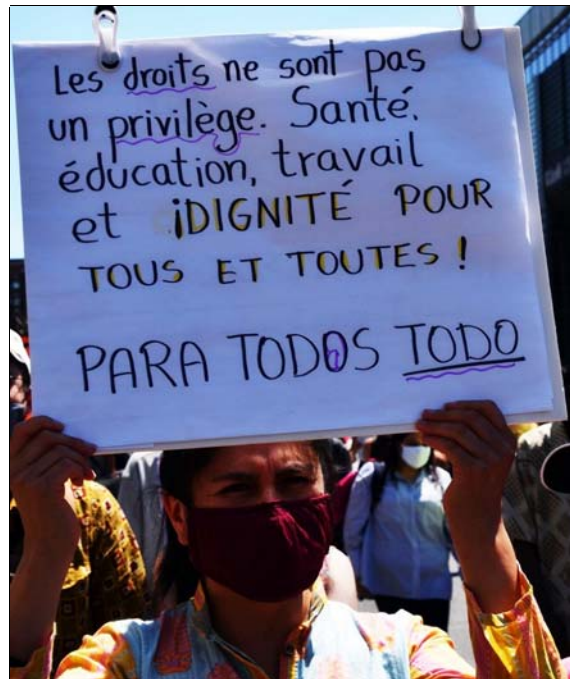 Les droits ne sont pas
un privilège. Santé,
éducation, travail
et ¡DIGNITÉ POUR
TOUS ET TOUTES !
PARA TODOS TODO